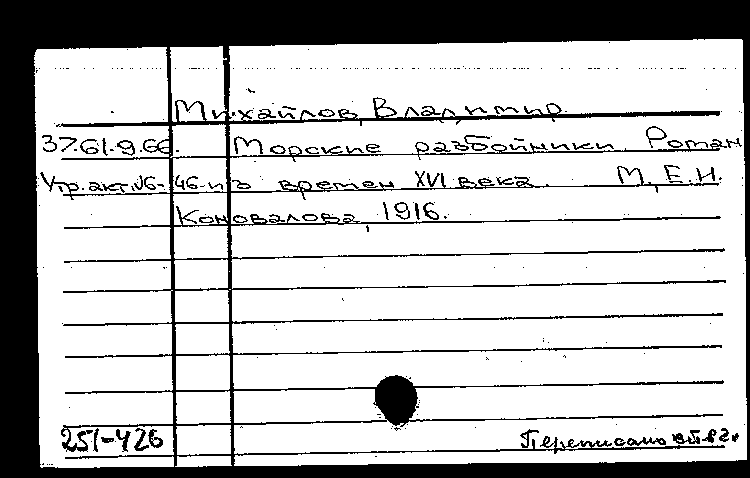 Михайлов, Владимир
37.61.9.66. Морские разбойники. Роман
Утр. акт. 46-из времен XVI века. М., Е.Н.
Коновалова, 1916.
251-426
Переписано